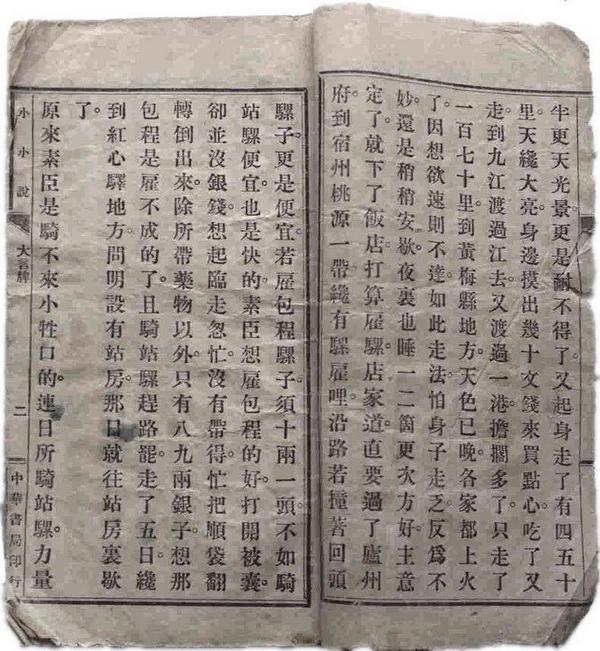 半更天光景更是耐不得了。又起身走了有四五十
里天纔大亮身邊摸出幾十文錢來買點心吃了又
走到九江渡過江去又渡過一港擔擱多了只走了
一百七十里到黃梅縣地方天色已晚各家都上火
了。因想欲速則不達如此走法怕身子走乏反爲不
妙。還是稍稍安歇夜裏也睡一二箇更次方好。主意
定了。就下了飯店打算雇騾店家道直要過了廬州
府到宿州桃源一帶纔有騾雇哩沿路若撞著回頭
騾子。更是便宜若雇包程騾子須十兩一頭不如騎
站騾便宜。也是快的。素臣想雇包程的好。打開被囊
卻並沒銀錢。想起臨走忽忙沒有帶得。忙把順袋翻
轉倒出來。除所帶藥物以外。只有八九兩銀子。想那
包程是雇不成的了。且騎站騾趕路罷。走了五日。纔
到紅心驛地方。問明設有站房。那日就往站房裏歇
了。
原來素臣是騎不來小牲口的。連日所騎站騾。力量
小小說
大著牌
二
中華書局印行